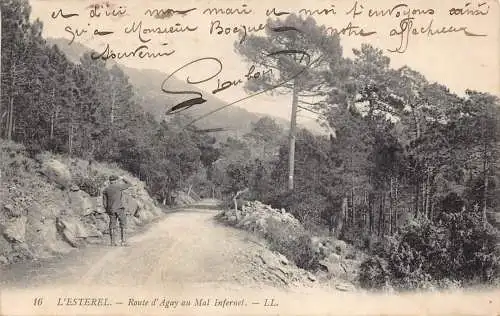 et d'ici mon mari et moi t'envoyons ainsi
qu'à Monsieur Bocquet notre affectueux
souvenir
16 L'ESTEREL. — Route d'Agay au Mal Infernet. — LL